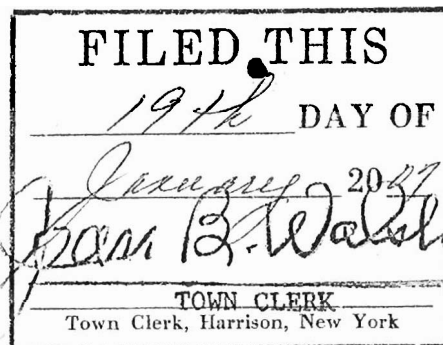 FILED THIS
19th DAY OF
January 2007
Joan B. Walsh
TOWN CLERK
Town Clerk, Harrison, New York